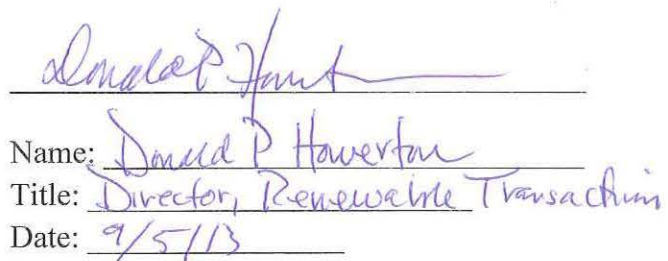 Donald P Howerton
Name: Donald P Howerton
Title: Director, Renewable Transactions
Date: 9/5/13